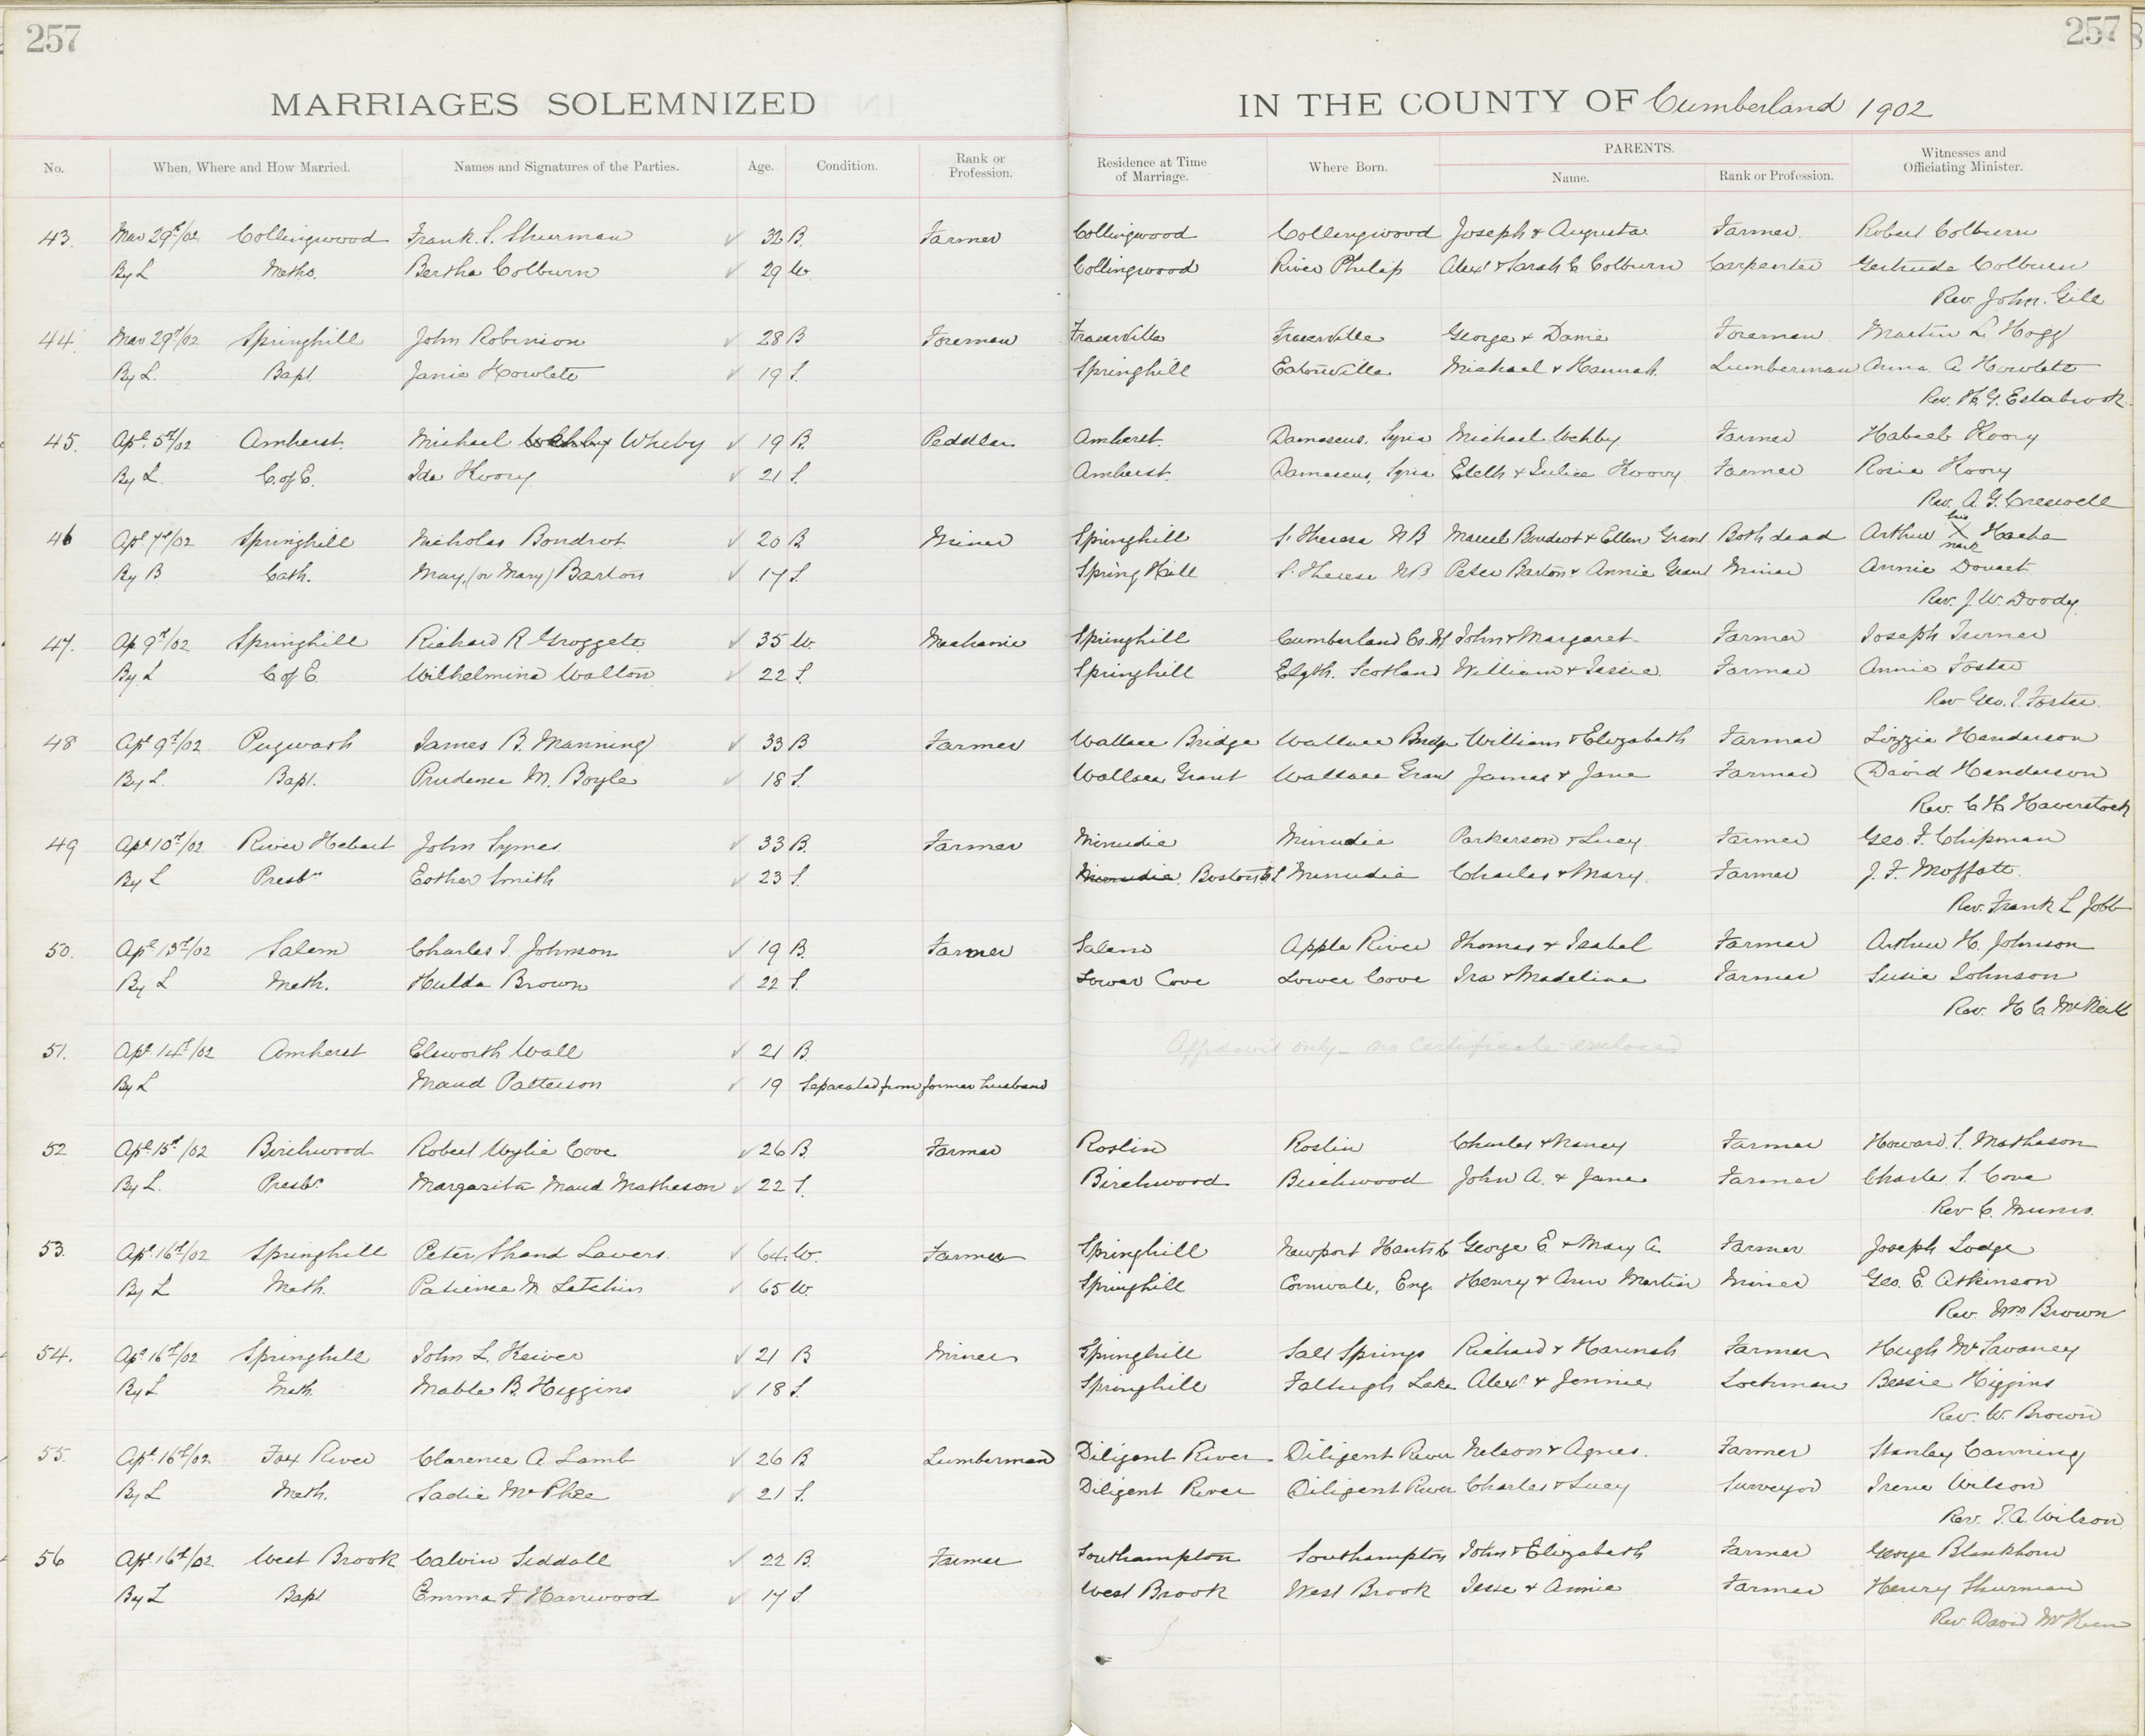 257 257
MARRIAGES SOLEMNIZED IN THE COUNTY OF Cumberland 1902
No. When, Where and How Married. Names and Signatures of the Parties. Age. Condition. Rank or Profession. Residence at Time of Marriage. Where Born. PARENTS. Name. Rank or Profession. Witnesses and Officiating Minister.
43. Mar 29th/02 Collingwood Frank. S. Shurman 32 B. Farmer Collingwood Collingwood Joseph & Augusta Farmer. Robert Colburn
By L Metho. Bertha Colburn 29 W. Collingwood River Philip Alexr & Sarah C Colburn Carpenter Gertrude Colburn
Rev. John. Gill
44. Mar 29th/02 Springhill John Robinson 28 B Foreman Fraserville Fraserville George & Foreman Martin L. Hogg
By L. Bapt Janie Howlett 19 S. Springhill Eatonville Michael & Hannah. Lumberman Anna. A Howlett
Rev. H. G. Estabrook.
45. Apl. 5th/02 Amherst. Michael Wehby Wheby 19 B. Peddlar Amherst. Damascus. Syria Michael Wehby Farmer Habeeb Koory
By L. C. of E. Ida Koory 21 S. Amherst. Damascus, Syria & Julice Koory Farmer Rosie Koory
Rev. A. G. Creswell
46 Apl. 7th/02 Springhill Nicholas Boudrot 20 B Miner Springhill S. Theresa N B Marcel Boudrot & Ellen Grant Both dead Arthur his X mark Hache
By B Cath. May, (or Mary) Barton 17 S. Spring Hill S. Therese N B Peter Barton & Annie Grant Miner Annie Doucet
Rev. J. W. Doody.
47. Ap 9th/02 Springhill Richard R Groggett 35 W. Mechanic Springhill Cumberland Co. N S John & Margaret Farmer Joseph Turner
By L C of E. Wilhelmina Walton 22 S. Springhill Scotland William & Jessie. Farmer Annie Foster
Rev Geo. I. Foster.
48 Apl 9th/02 Pugwash James B. Manning 33 B Farmer Wallace Bridge Wallace Bridge William & Elizabeth Farmer Lizzie Henderson
By L. Bapt. Prudence M. Boyle 18 S. Wallace Grant Wallace Grant James & Jane Farmer David Henderson
Rev. C H. Haverstock
49 Apl 10th/02 River Hebert John Symes 33 B. Farmer Minudie Minudie Parkerson & Lucy Farmer Geo. F. Chipman
By L Presbn Esther Smith 23 S. Minudie. Boston Minudie Charles & Mary. Farmer J. F. Moffatt.
Rev. Frank L Jobb
50. Apl 13th/02 Salem Charles T. Johnson 19 B. Farmer Salem Apple River Thomas & Isabel Farmer Arthur H. Johnson
By L Meth. Hulda Brown 22 S. Lower Cove Lower Cove Ira & Madeline Farmer Susie Johnson
Rev. H C McNeill
51. Apl 14th/02 Amherst Elsworth Wall 21 B Affidavit only - no certificate enclosed
By L Maud Patterson 19 Separated from former husband
52 Apl 15th/02 Birchwood Robert Wylie Cove 26 B. Farmer Roslin Roslin Charles & Nancy Farmer Howard. S. Matheson
By L. Presbn Margarita Maud Matheson 22 S. Birchwood Birchwood John A. & Jane Farmer Charles S. Cove
Rev C. Munro.
53. Apl 16th/02 Springhill Peter, Shand Lavers. 64. W. Farmer Springhill Newport Hants Co George E. & Mary A. Farmer Joseph Lodge
By L Meth. Patience N Letchin 65 W. Springhill Cornwall, Eng. Henry & Ann Martin Miner Geo. E. Atkinson
Rev. Wm Brown
54. Apl 16th/02 Springhill John L. Keiver 21 B Miner Springhill Salt Springs Richard & Hannah Farmer Hugh McSavaney
By L Meth Mable B. Higgins 18 S. Springhill Lake Alexr & Jennie Bessie Higgins
Rev. W. Brown
55. Apl 16th/02. Fox River Clarence A. Lamb 26 B Lumberman Diligent River Diligent River Nelson & Agnes. Farmer Stanley Canning
By L Meth. Sadie McPhee 21 S. Diligent River Diligent River Charles & Lucy Surveyor Irene Wilson
Rev. T. A. Wilson
56 Apl 16th/02. West Brook Calvin Siddall 22 B. Farmer Southampton Southampton John & Elizabeth Farmer George Blenkhorn
By L Bapt Emma F Harrwood 17 S. West Brook West Brook Jesse & Annie Farmer Henry Shurman
Rev. David McKeen